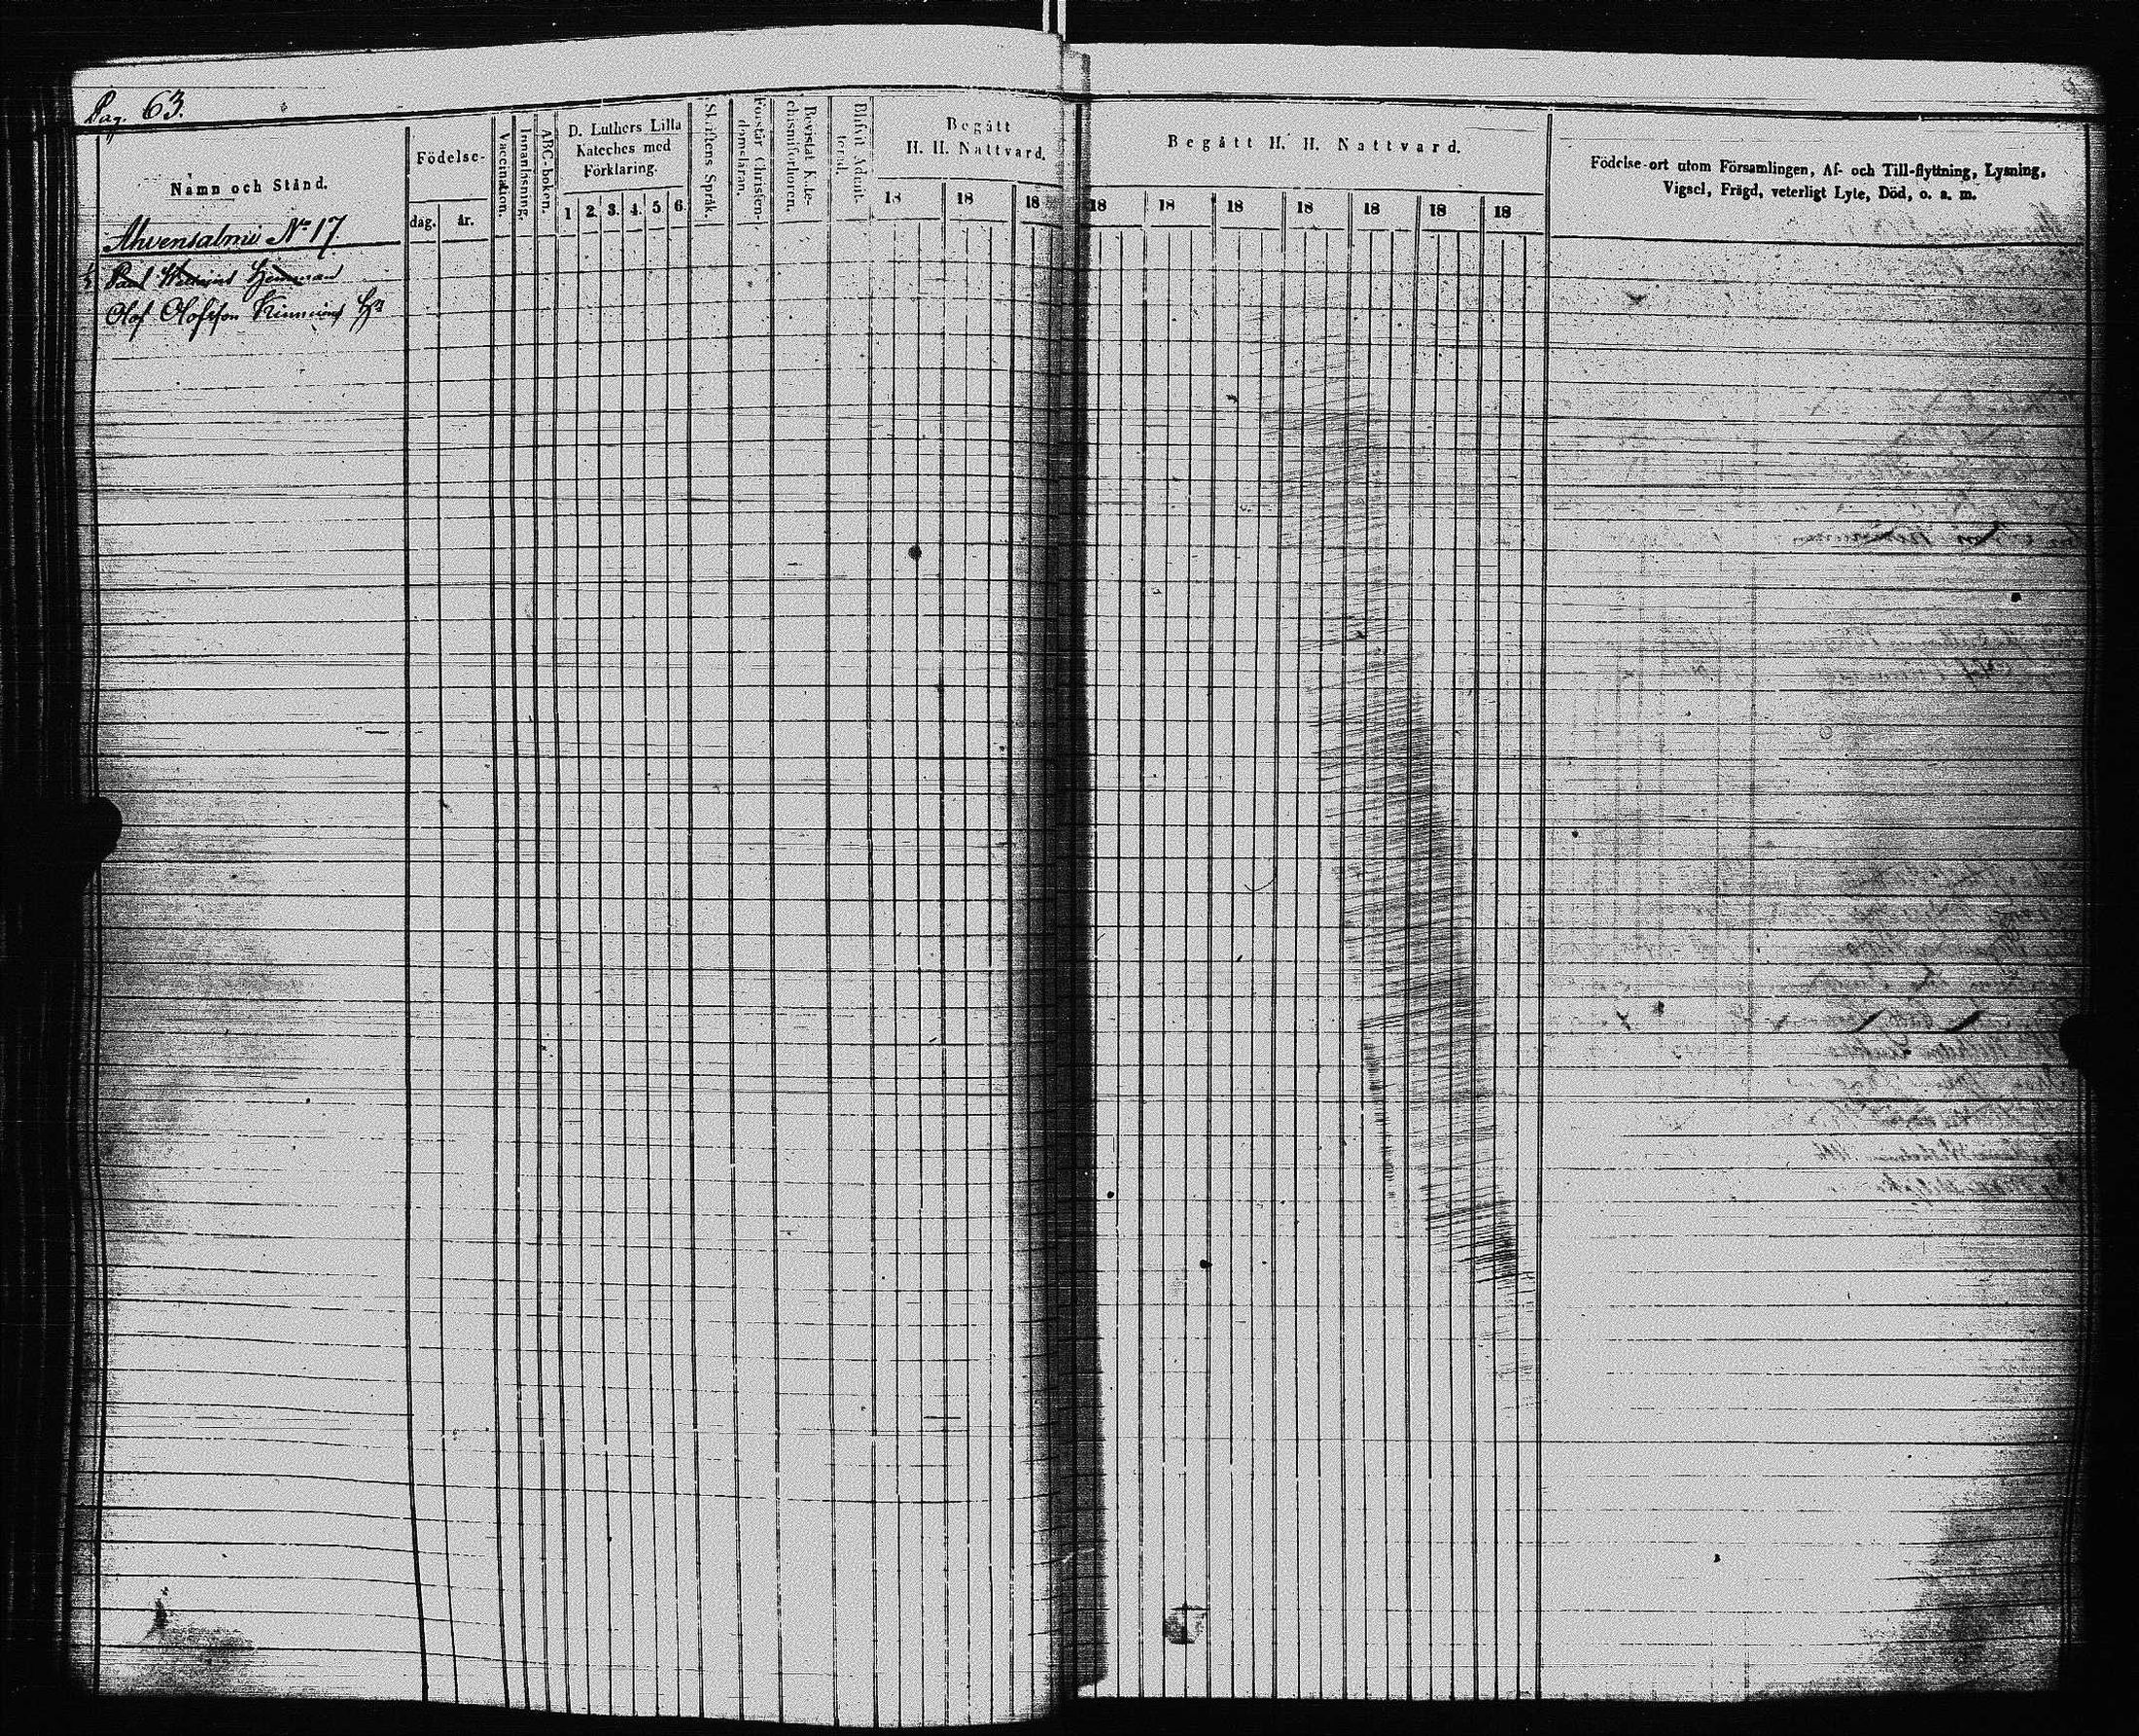 Pag. 63.
Namn och Stånd.
Födelse-
dag. år.
Vaccination.
Innanläsning.
ABC-boken.
D. Luthers Lilla
Kateches med
Förklaring.
1 2. 3. 4. 5 6
Skriftens Språk.
Förstår Christen-
domsläran.
Bevistat Kate-
chismiförhoren.
Blifvit Admit-
terad.
Begått
H. H. Nattvard.
18 18 18
Begått H. H. Nattvard.
18 18 18 18 18 18 18
Födelse-ort utom Församlingen, Af- och Till-flyttning, Lysning,
Vigsel, Frägd, veterligt Lyte, Död, o. s. m.
Ahvensalmi No 17
Paul
Olof Olofsson